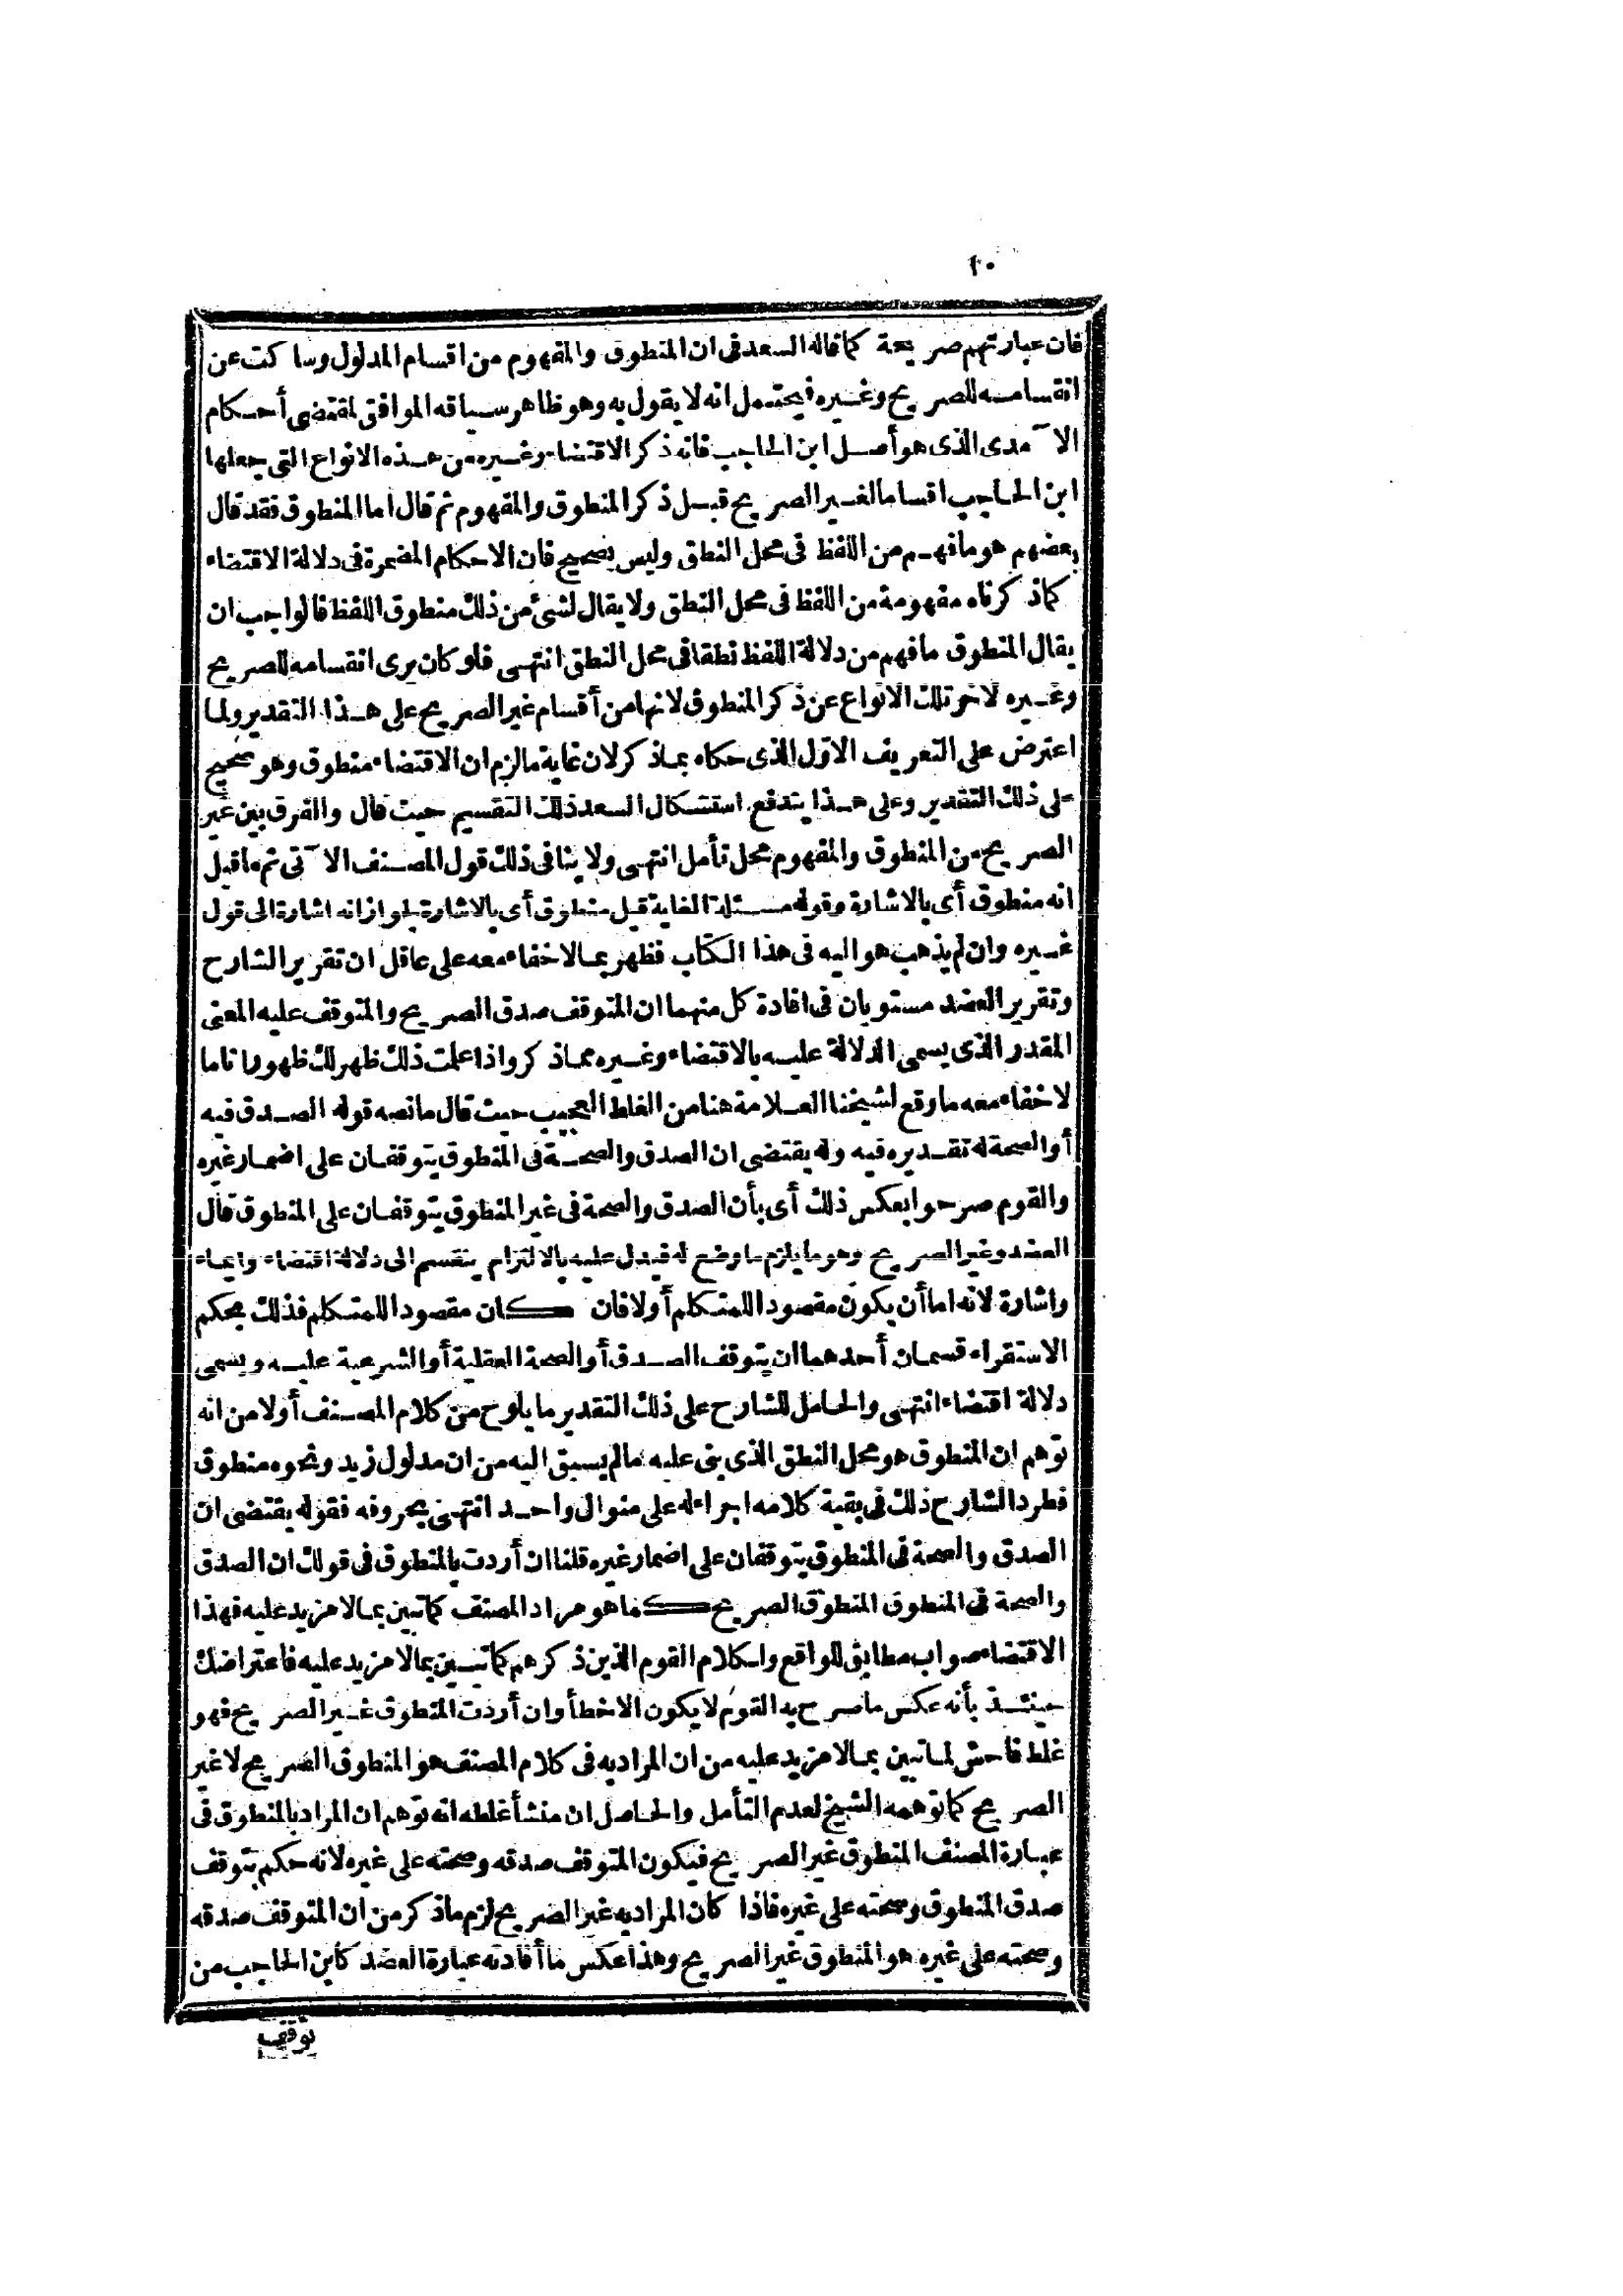 ١٠
فان عبارتهم صريحة كما قاله السعد فى ان المنطوق والمفهوم من اقسام المدلول وساكت عن
انقسامه للصريح وغيره فيحتمل انه لا يقول به وهو ظاهر سياقه الموافق لمقتضى أحكام
الآمدى الذى هو أصل ابن الحاجب فانه ذكر الاقتضاء وغيره من هذه الانواع التى جعلها
ابن الحاجب اقساما لغير الصريح قبل ذكر المنطوق والمفهوم ثم قال اما المنطوق فقد قال
بعضهم هو ما فهم من اللفظ فى محل النطق وليس بصحيح فان الاحكام المضمرة فى دلالة الاقتضاء
كما ذكرناه مفهومة من اللفظ فى محل النطق ولا يقال لشئ من ذلك منطوق اللفظ فالواجب ان
يقال المنطوق ما فهم من دلالة اللفظ نطقا فى محل النطق انتهى فلو كان يرى انقسامه للصريح
وغيره لاخر تلك الانواع عن ذكر المنطوق لانها من أقسام غير الصريح على هذا التقدير ولما
اعترض على التعريف الاول الذى حكاه بما ذكر لان غاية ما لزم ان الاقتضاء منطوق وهو صحيح
على ذلك التقدير وعلى هذا يندفع استشكال السعد ذلك التقسيم حيث قال والفرق بين غير
الصريح من المنطوق والمفهوم محل تأمل انتهى ولا ينافى ذلك قول المصنف الآتى ثم ما قيل
انه منطوق أى بالاشارة وقوله مسئلة الغاية قيل منطوق أى بالاشارة لجواز انه اشارة الى قول
غيره وان لم يذهب هو اليه فى هذا الكتاب فظهر بما لا خفاء معه على عاقل ان تقرير الشارح
وتقرير العضد مستويان فى افادة كل منهما ان المتوقف صدق الصريح والمتوقف عليه المعنى
المقدر الذى يسمى الدلالة عليه بالاقتضاء وغيره مما ذكر واذا علمت ذلك ظهر لك ظهورا تاما
لا خفاء معه ما وقع لشيخنا العلامة هنا من الغلط العجيب حيث قال ما نصه قوله الصدق فيه
أو الصحة له تقديره فيه وله يقتضى ان الصدق والصحة فى المنطوق يتوقفان على اضمار غيره
والقوم صرحوا بعكس ذلك أى بأن الصدق والصحة فى غير المنطوق يتوقفان على المنطوق قال
العضد وغير الصريح وهو ما يلزم ما وضع له فيدل عليه بالالتزام ينقسم الى دلالة اقتضاء وايماء
واشارة لانه اما أن يكون مقصودا للمتكلم أو لا فان كان مقصودا للمتكلم فذلك بحكم
الاستقراء قسمان أحدهما ان يتوقف الصدق أو الصحة العقلية أو الشرعية عليه ويسمى
دلالة اقتضاء انتهى والحامل للشارح على ذلك التقدير ما يلوح من كلام المصنف أولا من انه
توهم ان المنطوق هو محل النطق الذى بنى عليه ما لم يسبق اليه من ان مدلول زيد ونحوه منطوق
فطرد الشارح ذلك فى بقية كلامه اجراء له على منوال واحد انتهى بحروفه فقوله يقتضى ان
الصدق والصحة فى المنطوق يتوقفان على اضمار غيره قلنا ان أردت بالمنطوق فى قولك ان الصدق
والصحة فى المنطوق المنطوق الصريح كما هو مراد المصنف كما تبين بما لا مزيد عليه فهذا
الاقتضاء صواب مطابق للواقع ولكلام القوم الذين ذكرهم كما تبين بما لا مزيد عليه فاعتراضك
حينئذ بأنه عكس ما صرح به القوم لا يكون الا خطأ وان أردت المنطوق غير الصريح فهو
غلط فاحش لما تبين بما لا مزيد عليه من ان المراد به فى كلام المصنف هو المنطوق الصريح لا غير
الصريح كما توهمه الشيخ لعدم التأمل والحاصل ان منشأ غلطه انه توهم ان المراد بالمنطوق فى
عبارة المصنف المنطوق غير الصريح فيكون المتوقف صدقه وصحته على غيره لانه حكم بتوقف
صدق المنطوق وصحته على غيره فاذا كان المراد به غير الصريح لزم ما ذكر من ان المتوقف صدقه
وصحته على غيره هو المنطوق غير الصريح وهذا عكس ما أفادته عبارة العضد كابن الحاجب من
توقف